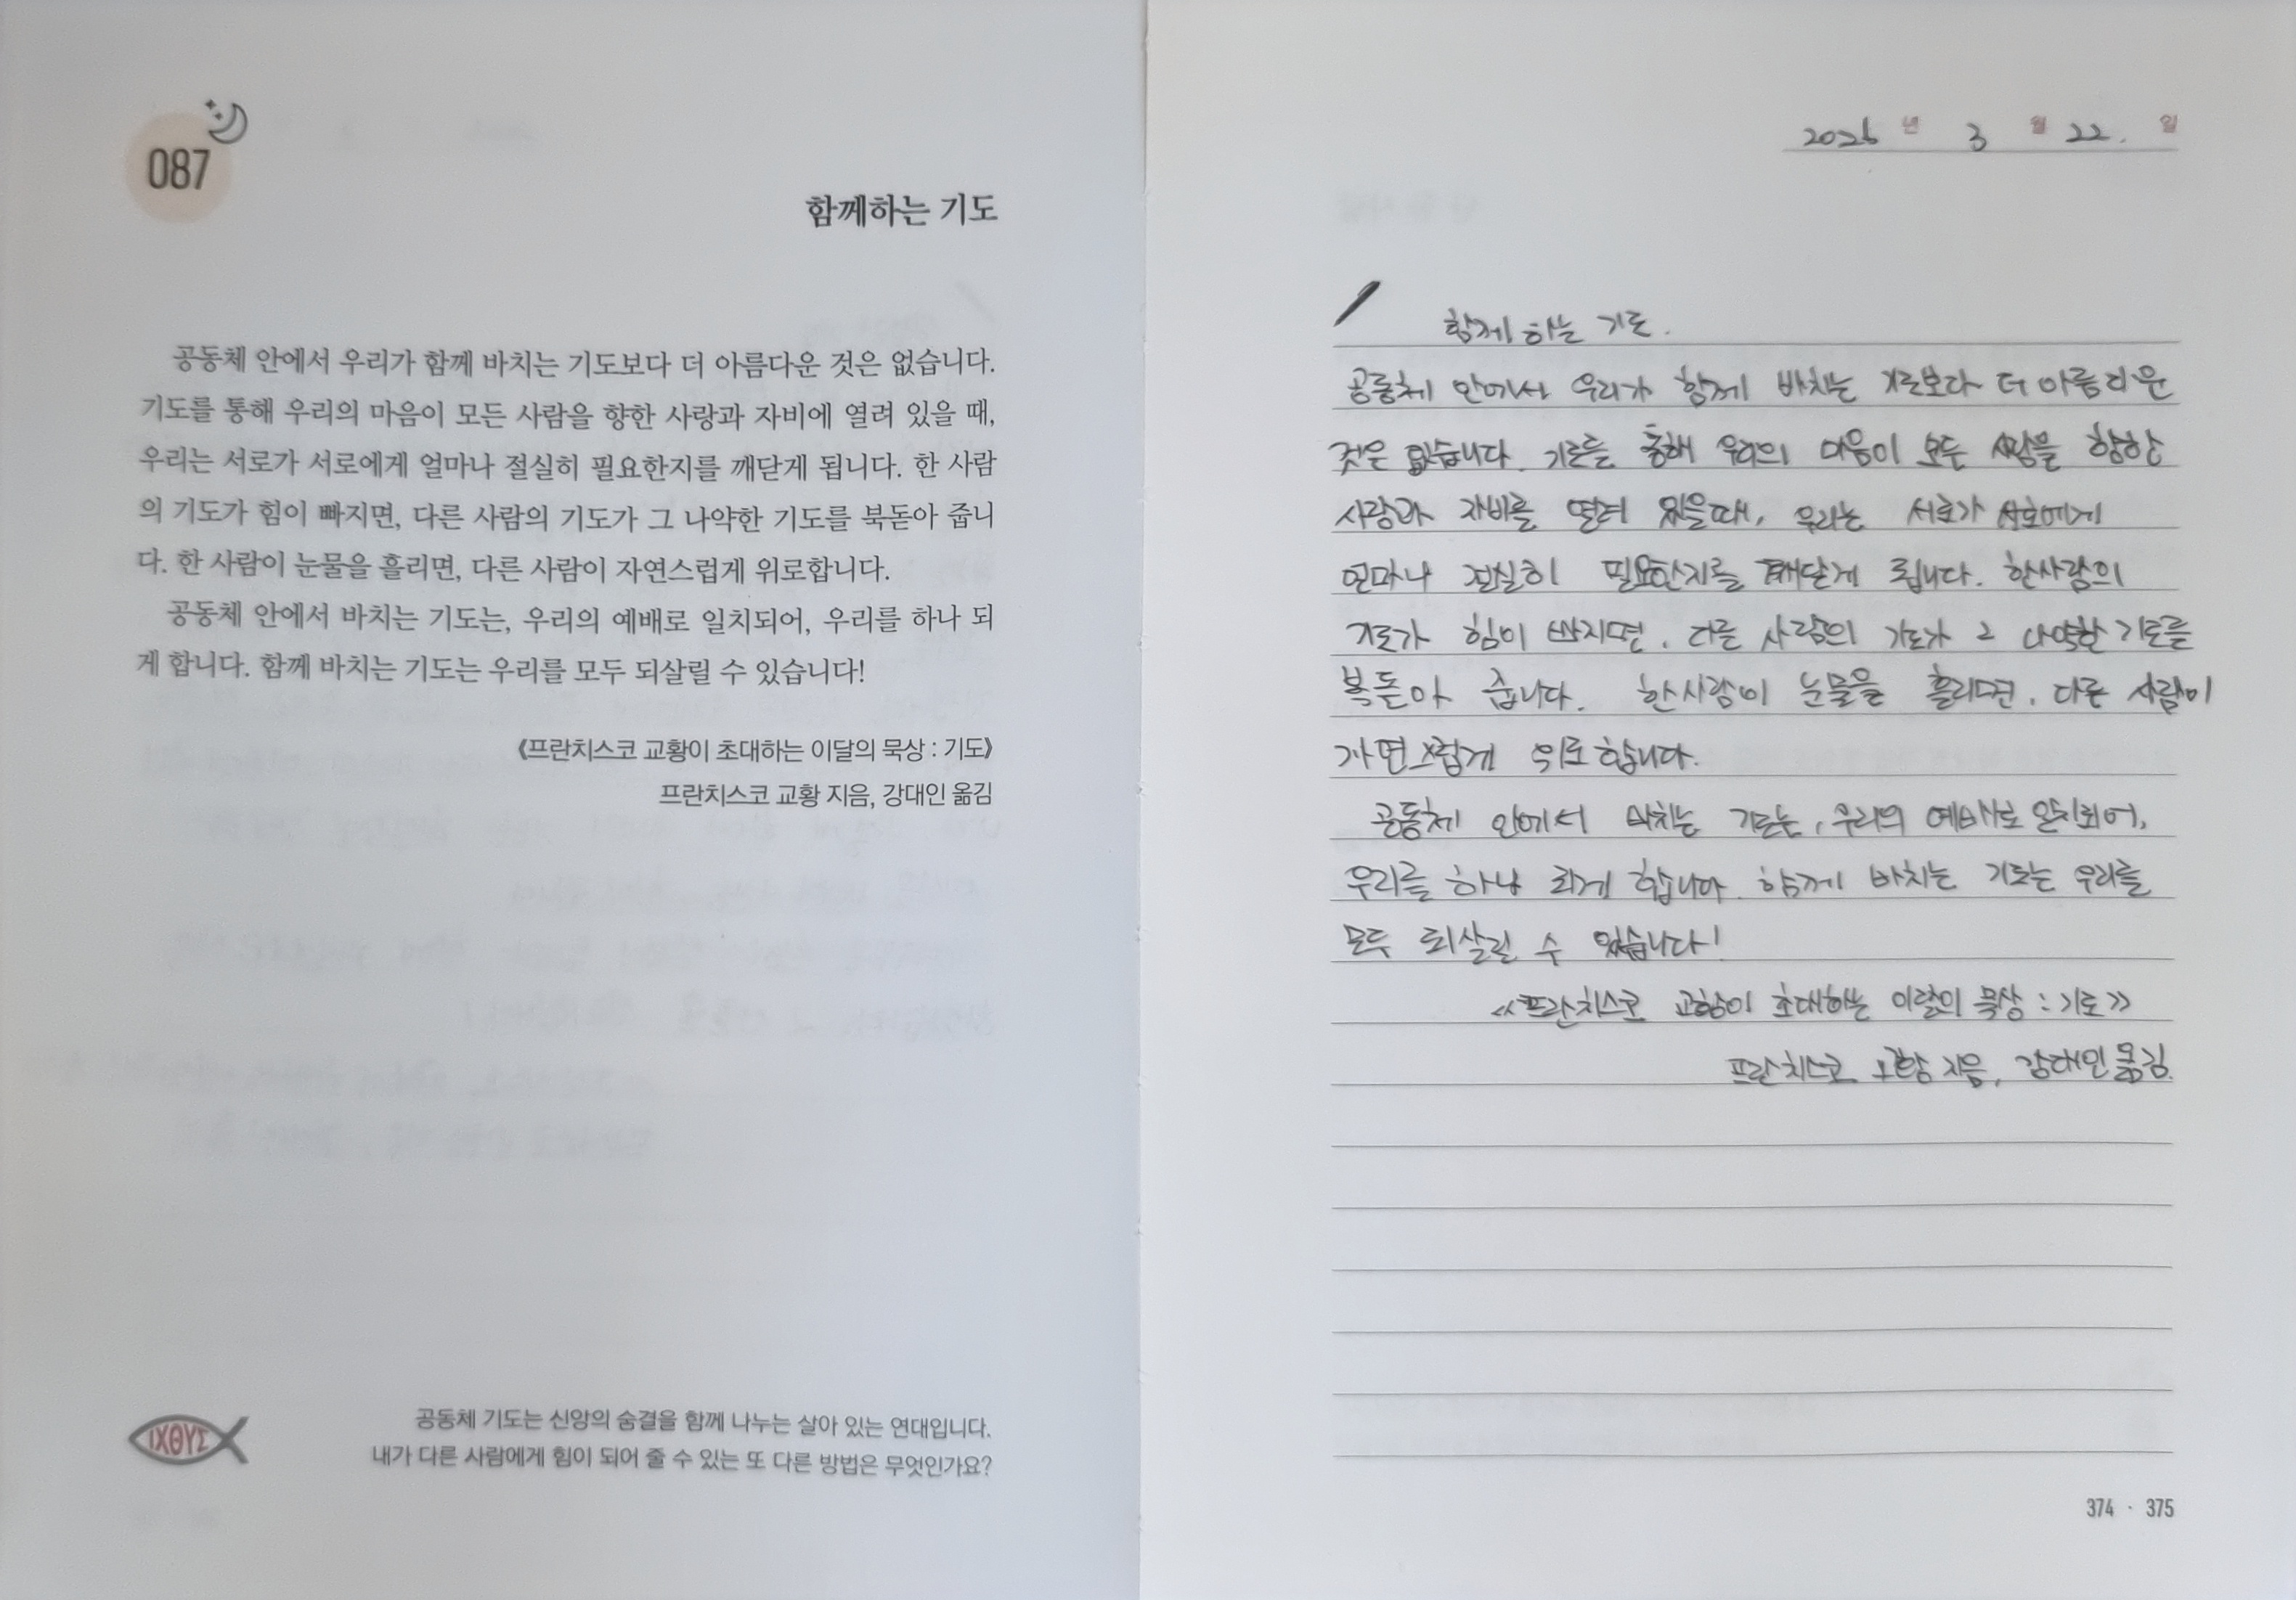 087
함께하는 기도
공동체 안에서 우리가 함께 바치는 기도보다 더 아름다운 것은 없습니다.
기도를 통해 우리의 마음이 모든 사람을 향한 사랑과 자비에 열려 있을 때,
우리는 서로가 서로에게 얼마나 절실히 필요한지를 깨닫게 됩니다. 한 사람
의 기도가 힘이 빠지면, 다른 사람의 기도가 그 나약한 기도를 북돋아 줍니
다. 한 사람이 눈물을 흘리면, 다른 사람이 자연스럽게 위로합니다.
공동체 안에서 바치는 기도는, 우리의 예배로 일치되어, 우리를 하나 되
게 합니다. 함께 바치는 기도는 우리를 모두 되살릴 수 있습니다!
《프란치스코 교황이 초대하는 이달의 묵상 : 기도》
프란치스코 교황 지음, 강대인 옮김
ΙΧΘΥΣ
공동체 기도는 신앙의 숨결을 함께 나누는 살아 있는 연대입니다.
내가 다른 사람에게 힘이 되어 줄 수 있는 또 다른 방법은 무엇인가요?
2026 년 3 월 22. 일
함께 하는 기도.
공동체 안에서 우리가 함께 바치는 기도보다 더 아름다운
것은 없습니다. 기도를 통해 우리의 마음이 모든 사람을 향한
사랑과 자비를 열려 있을때, 우리는 서로가 서로에게
얼마나 절실히 필요한지를 깨닫게 됩니다. 한사람의
기도가 힘이 빠지면, 다른 사람의 기도가 그 나약한 기도를
북돋아 줍니다. 한사람이 눈물을 흘리면, 다른 사람이
자연스럽게 위로합니다.
공동체 안에서 바치는 기도는, 우리의 예배로 일치되어,
우리를 하나 되게 합니다. 함께 바치는 기도는 우리를
모두 되살릴 수 있습니다!
《프란치스코 교황이 초대하는 이달의 묵상 : 기도》
프란치스코 교황 지음, 강대인 옮김.
374 · 375